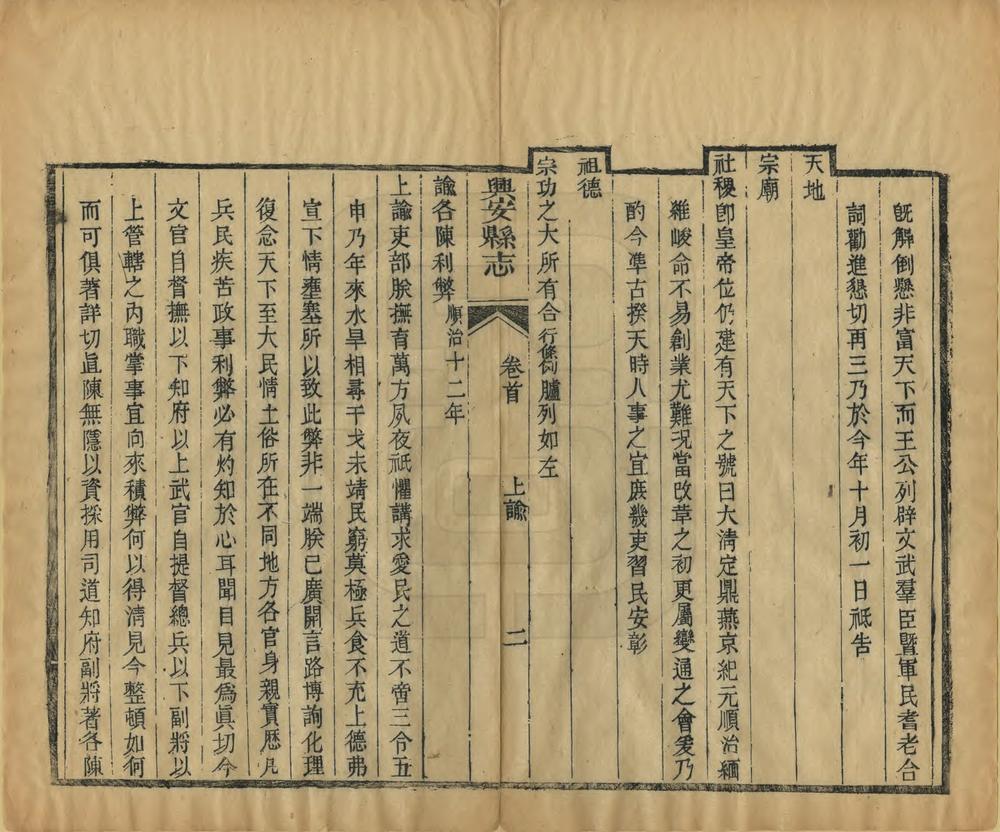 旣解倒懸非富天下而王公列辟文武羣臣暨軍民耆老合
詞勸進懇切再三乃於今年十月初一日祇吿
天地
宗廟
社稷卽皇帝位仍建有天下之號曰大淸定鼎燕京紀元順治緬
維峻命不易創業尤難況當改革之初更屬變通之會爰乃
酌今凖古揆天時人事之宜庶幾吏習民安彰
祖德
宗功之大所有合行條例臚列如左
興安縣志
卷首
上諭
二
諭各陳利弊順治十二年
上諭吏部朕撫育萬方夙夜祇懼講求愛民之道不啻三令五
申乃年來水旱相尋干戈未靖民窮莫極兵食不充上德弗
宣下情壅塞所以致此弊非一端朕已廣開言路博詢化理
復念天下至大民情土俗所在不同地方各官身親實歷凡
兵民疾苦政事利弊必有灼知於心耳聞目見最爲眞切今
文官自督撫以下知府以上武官自提督總兵以下副將以
上管轄之內職掌事宜向來積弊何以得淸見今整頓如何
而可俱著詳切直陳無隱以資採用司道知府副將著各陳